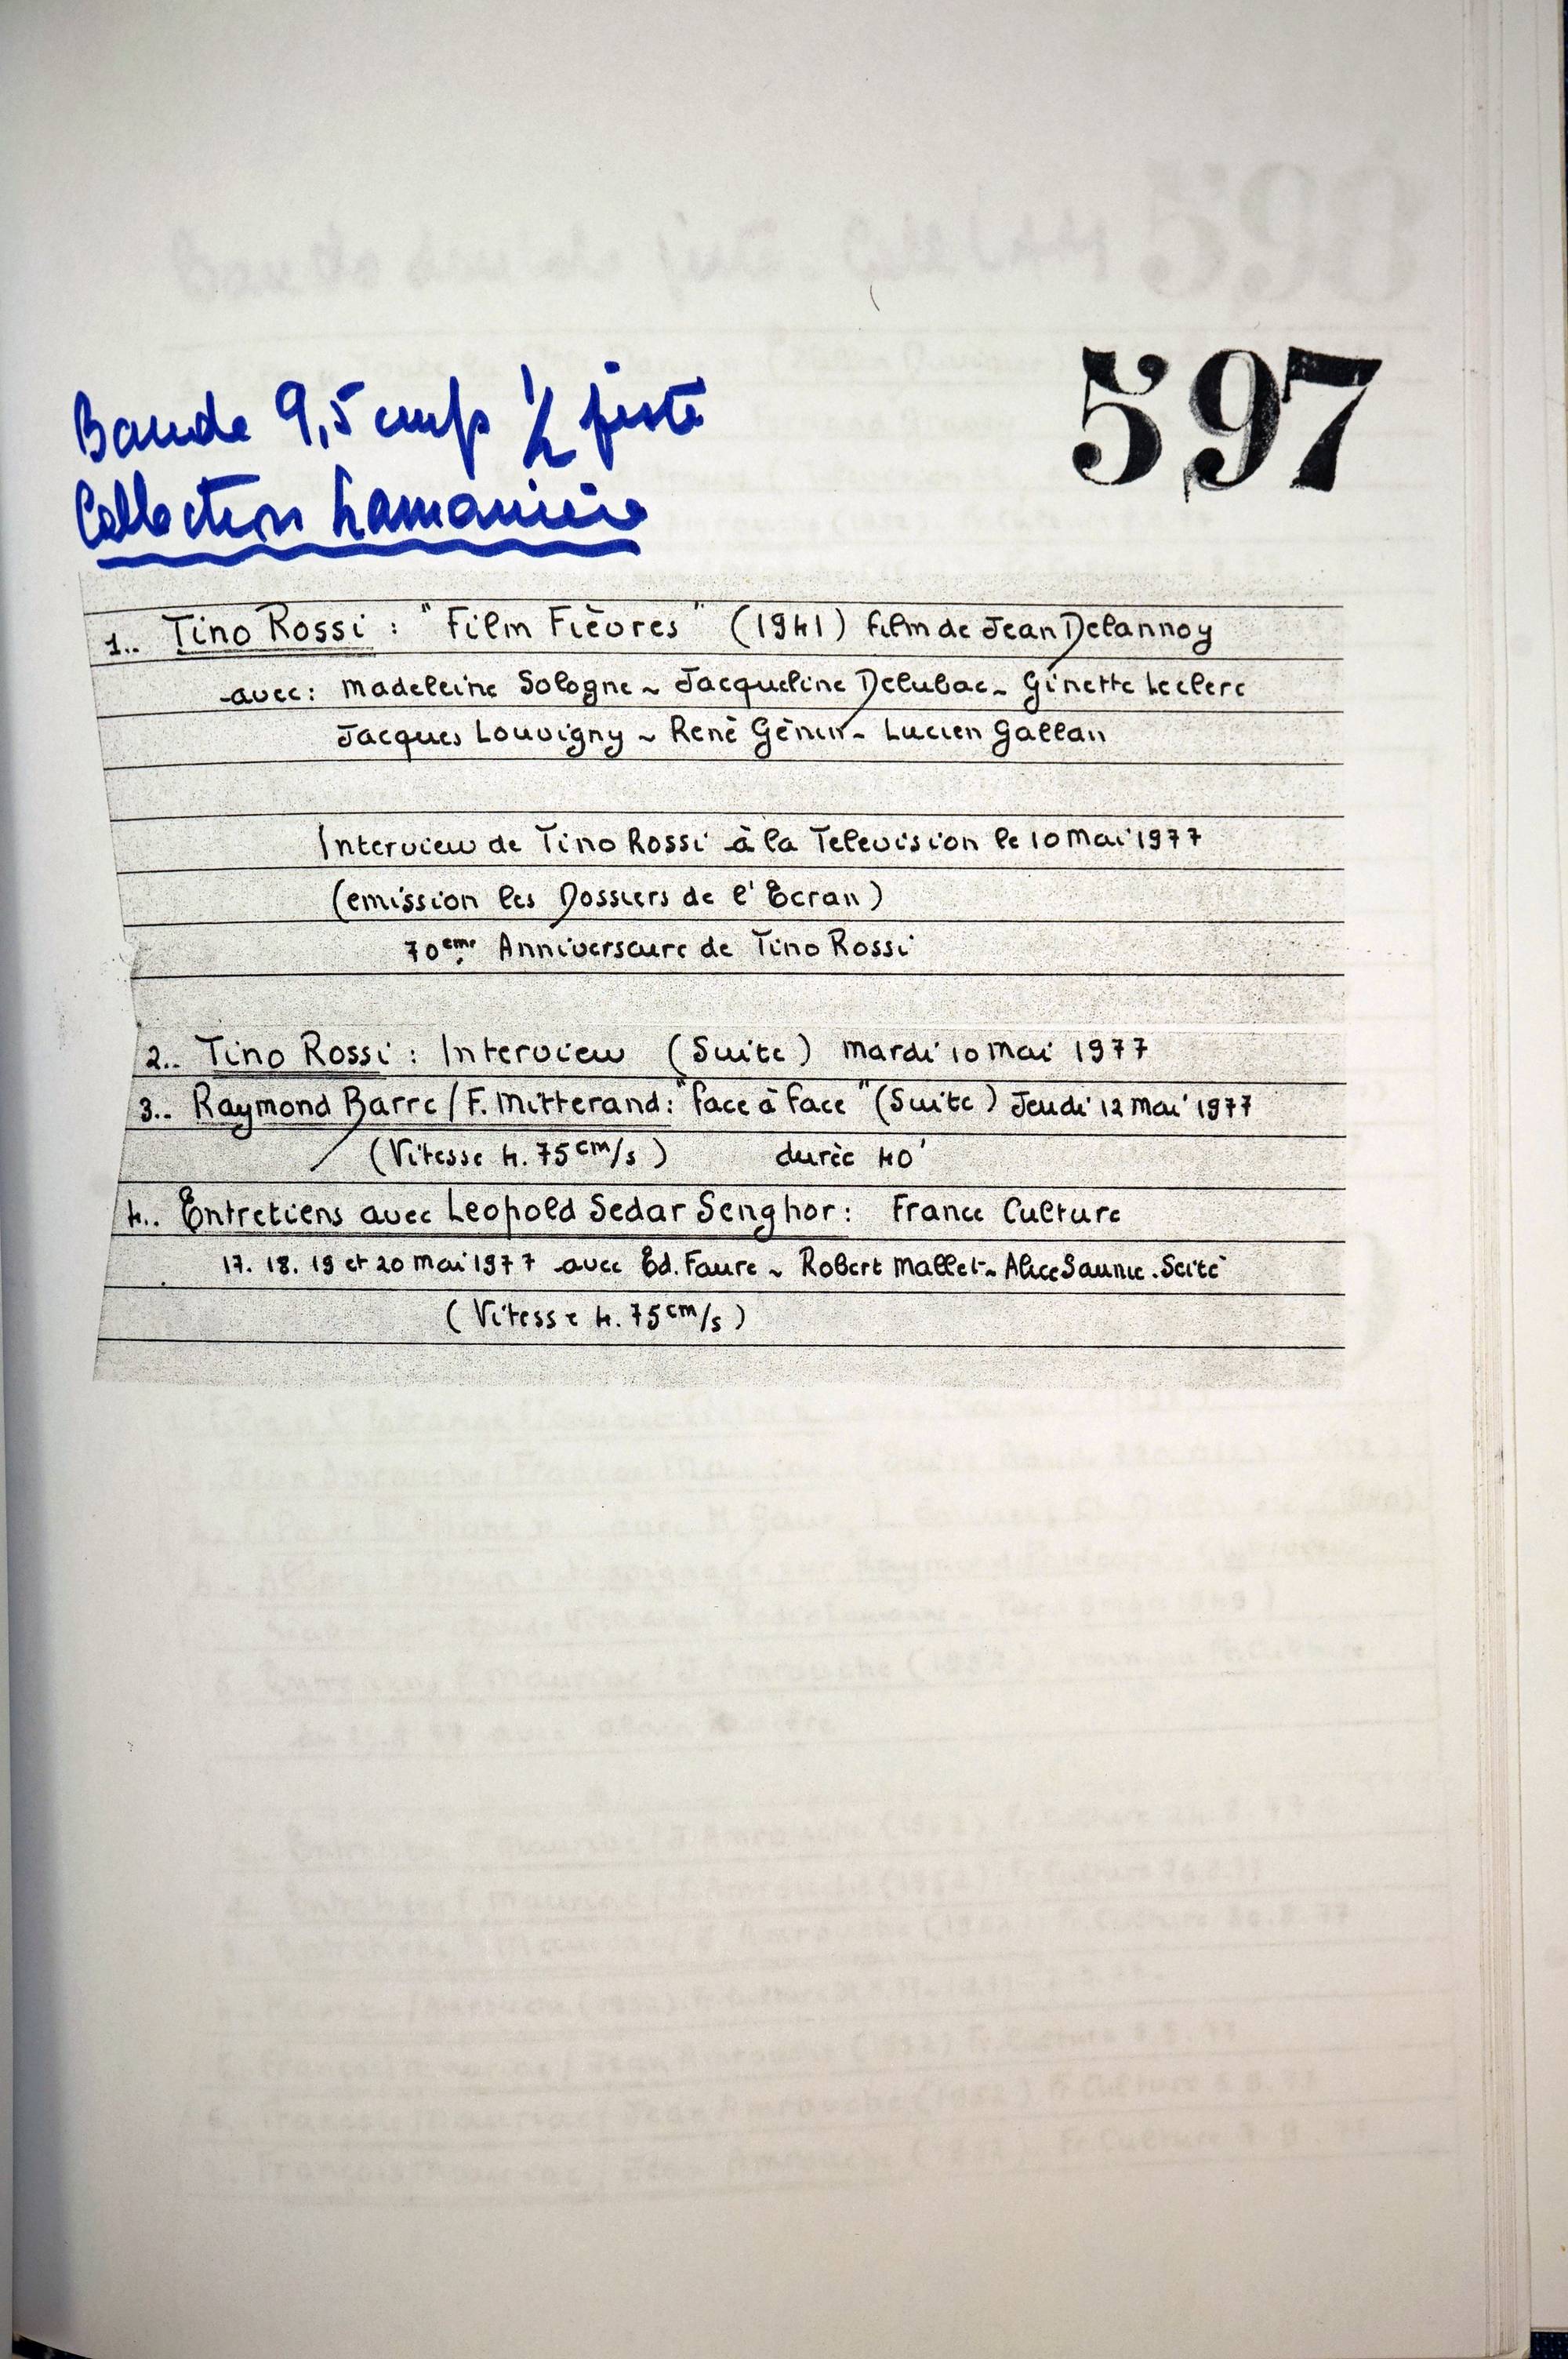 Bande 9,5 cm/s 1/2 piste
597
Collection Lamanière
1.. Tino Rossi : "Film Fièvres" (1941) film de Jean Delannoy
avec : Madeleine Sologne ~ Jacqueline Delubac ~ Ginette Leclerc
Jacques Louvigny ~ René Génin - Lucien Gallan
Interview de Tino Rossi à la Television le 10 Mai 1977
(emission les Dossiers de l'Ecran)
70eme Anniversaire de Tino Rossi
2.. Tino Rossi : Interview (Suite) Mardi 10 Mai 1977
3.. Raymond Barre / F. Mitterand : "face à face" (Suite) Jeudi 12 Mai 1977
(Vitesse 4.75 cm/s) durée 40'
4.. Entretiens avec Leopold Sedar Senghor : France Culture
17. 18. 19 et 20 Mai 1977 avec Ed. Faure ~ Robert Mallet ~ Alice Saunie. Seité
(Vitesse 4.75 cm/s)